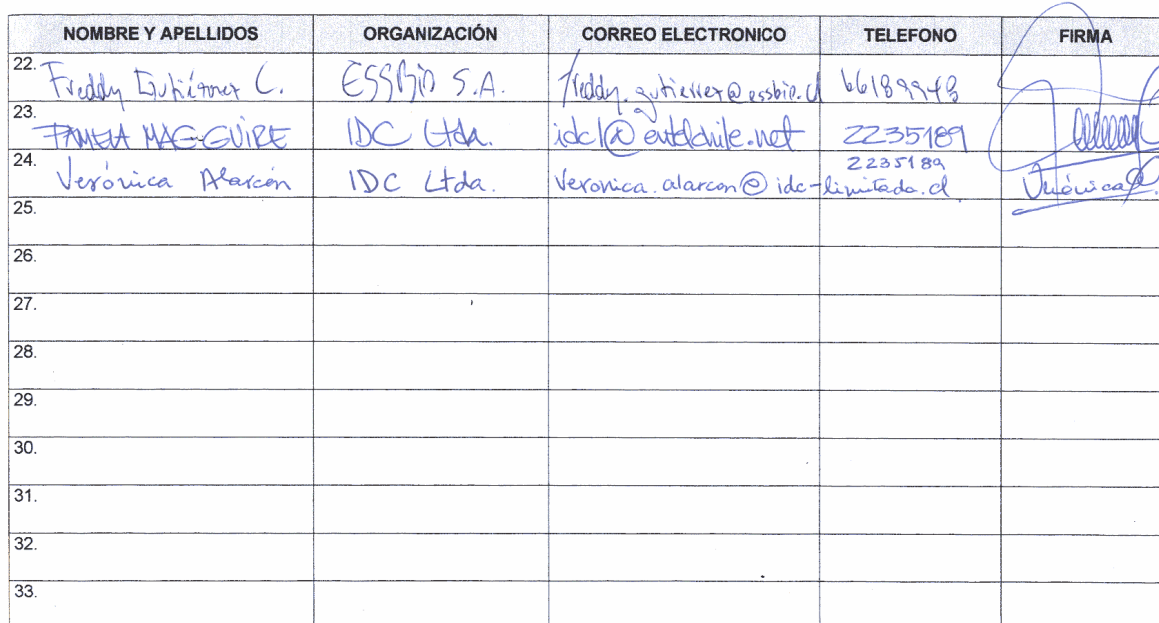 NOMBRE Y APELLIDOS ORGANIZACIÓN CORREO ELECTRONICO TELEFONO FIRMA
22. Freddy Gutiérrez C. ESSBIO S.A. freddy.gutierrez@essbio.cl
23. PAMELA MAC-GUIRE IDC Ltda. idcl@entelchile.net 2235189
24. Verónica Alarcón IDC Ltda. veronica.alarcon@idc-limitada.cl 2235189 Verónica
25.
26.
27.
28.
29.
30.
31.
32.
33.